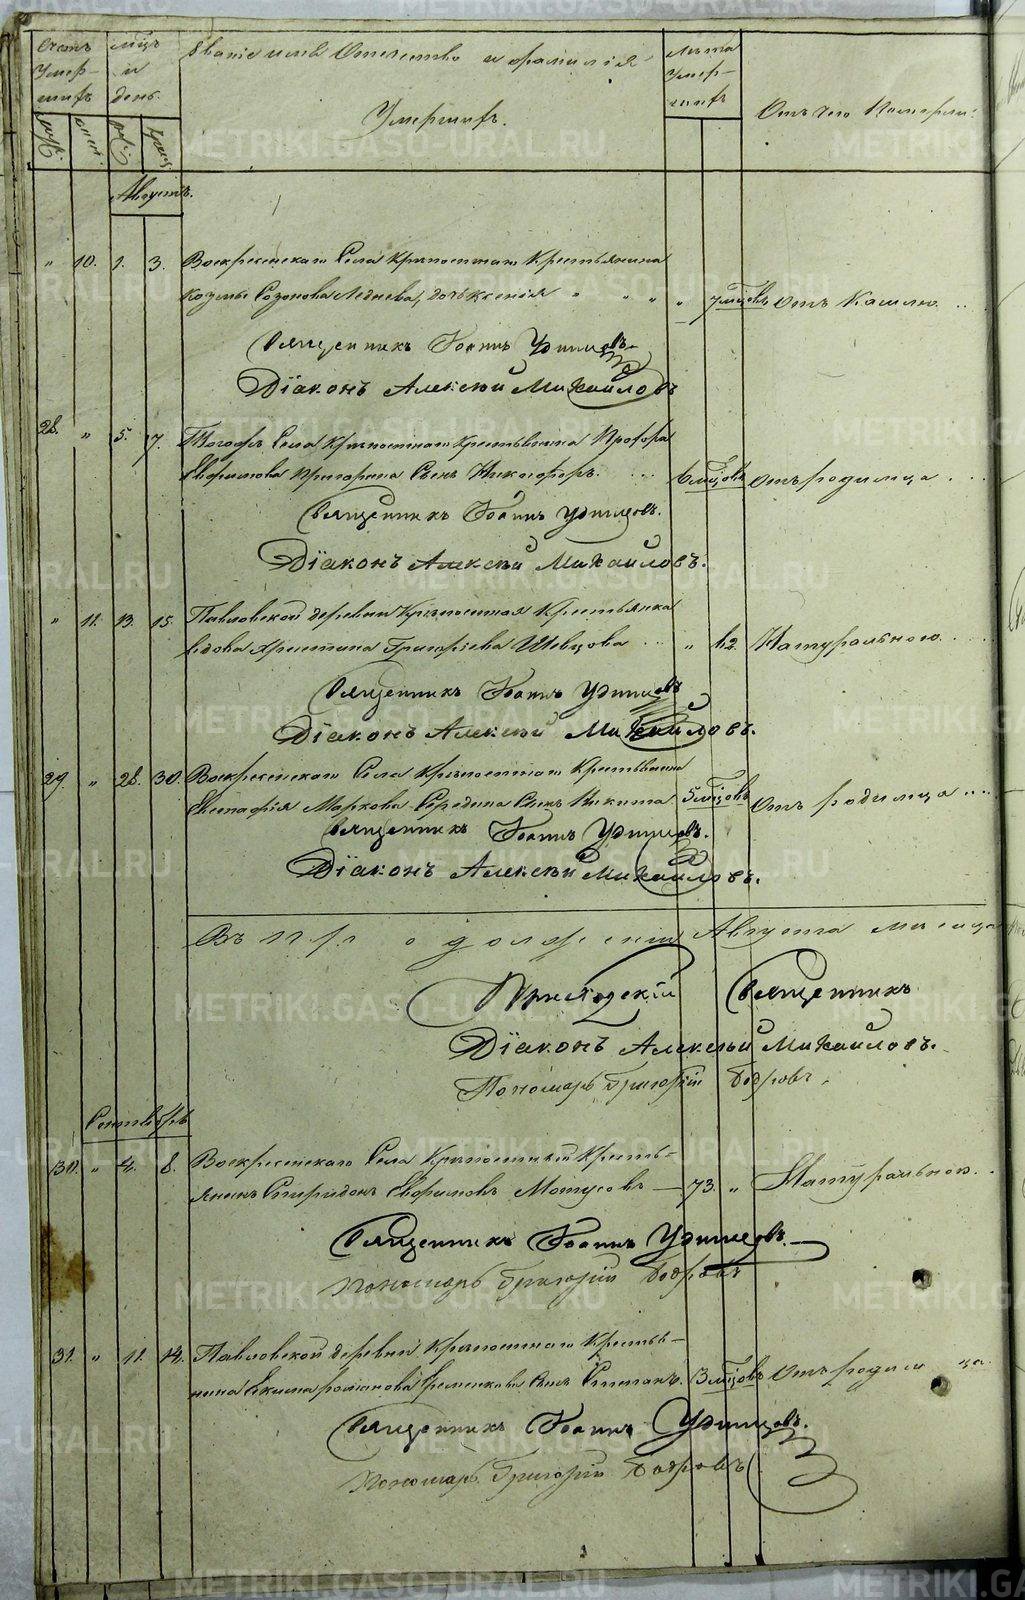 Счетъ Умер- шихъ
мцъ и день.
Званіе имя Отчество и фамилія Умершихъ.
лѣта Умер- шихъ
Отъ чего Померли.
Августъ.
" 10. 1. 3. Воскресенскаго Села Крѣпостнаго Крестьянина
Козмы Созонова Леднева, дочь Ксенія " " " " 7 мцовъ Отъ Кашлю ..
Священникъ Іоаннъ Удинцевъ
Діаконъ Алексѣй Михайловъ
28. " 5. 7. Тогожъ Села Крѣпостнаго Крестьянина Прохора
Евфимова Сынъ Никифоръ. ... 6 мцовъ Отъ родимца . . .
Священникъ Іоаннъ Удинцевъ.
Діаконъ Алексѣй Михайловъ.
" 11. 13. 15. Павловской деревни Крѣпостная Крестьянка
вдова Христина Григорьева Шевцова ... " 62 Натуральною. . .
Священникъ Іоаннъ Удинцевъ
Діаконъ Алексѣй Михайловъ.
29. " 28. 30. Воскресенскаго Села Крѣпостнаго Крестьянина
Евстафія Маркова Середина Сынъ Никита 5 мцовъ Отъ родимца ....
Священникъ Іоаннъ Удинцевъ.
Діаконъ Алексѣй Михайловъ.
Августа мѣсяца
Приходскій Священникъ
Діаконъ Алексѣй Михайловъ.
Пономарь Григорій Бодровъ.
Сентябрь
30. " 4. 8. Воскресенскаго Села Крѣпостный Кресть-
янинъ Спиридонъ Евфимовъ Мотусовъ — 73. " Натуральною. .
Священникъ Іоаннъ Удинцевъ.
Пономарь Григорій Бодровъ
31. " 11. 14. Павловской деревни Крѣпостнаго Кресть-
янина Екима Романова Сынъ Степанъ. 3 мцовъ Отъ родимца.
Священникъ Іоаннъ Удинцевъ.
Пономарь Григорій Бодровъ
METRIKI.GASO-URAL.RU